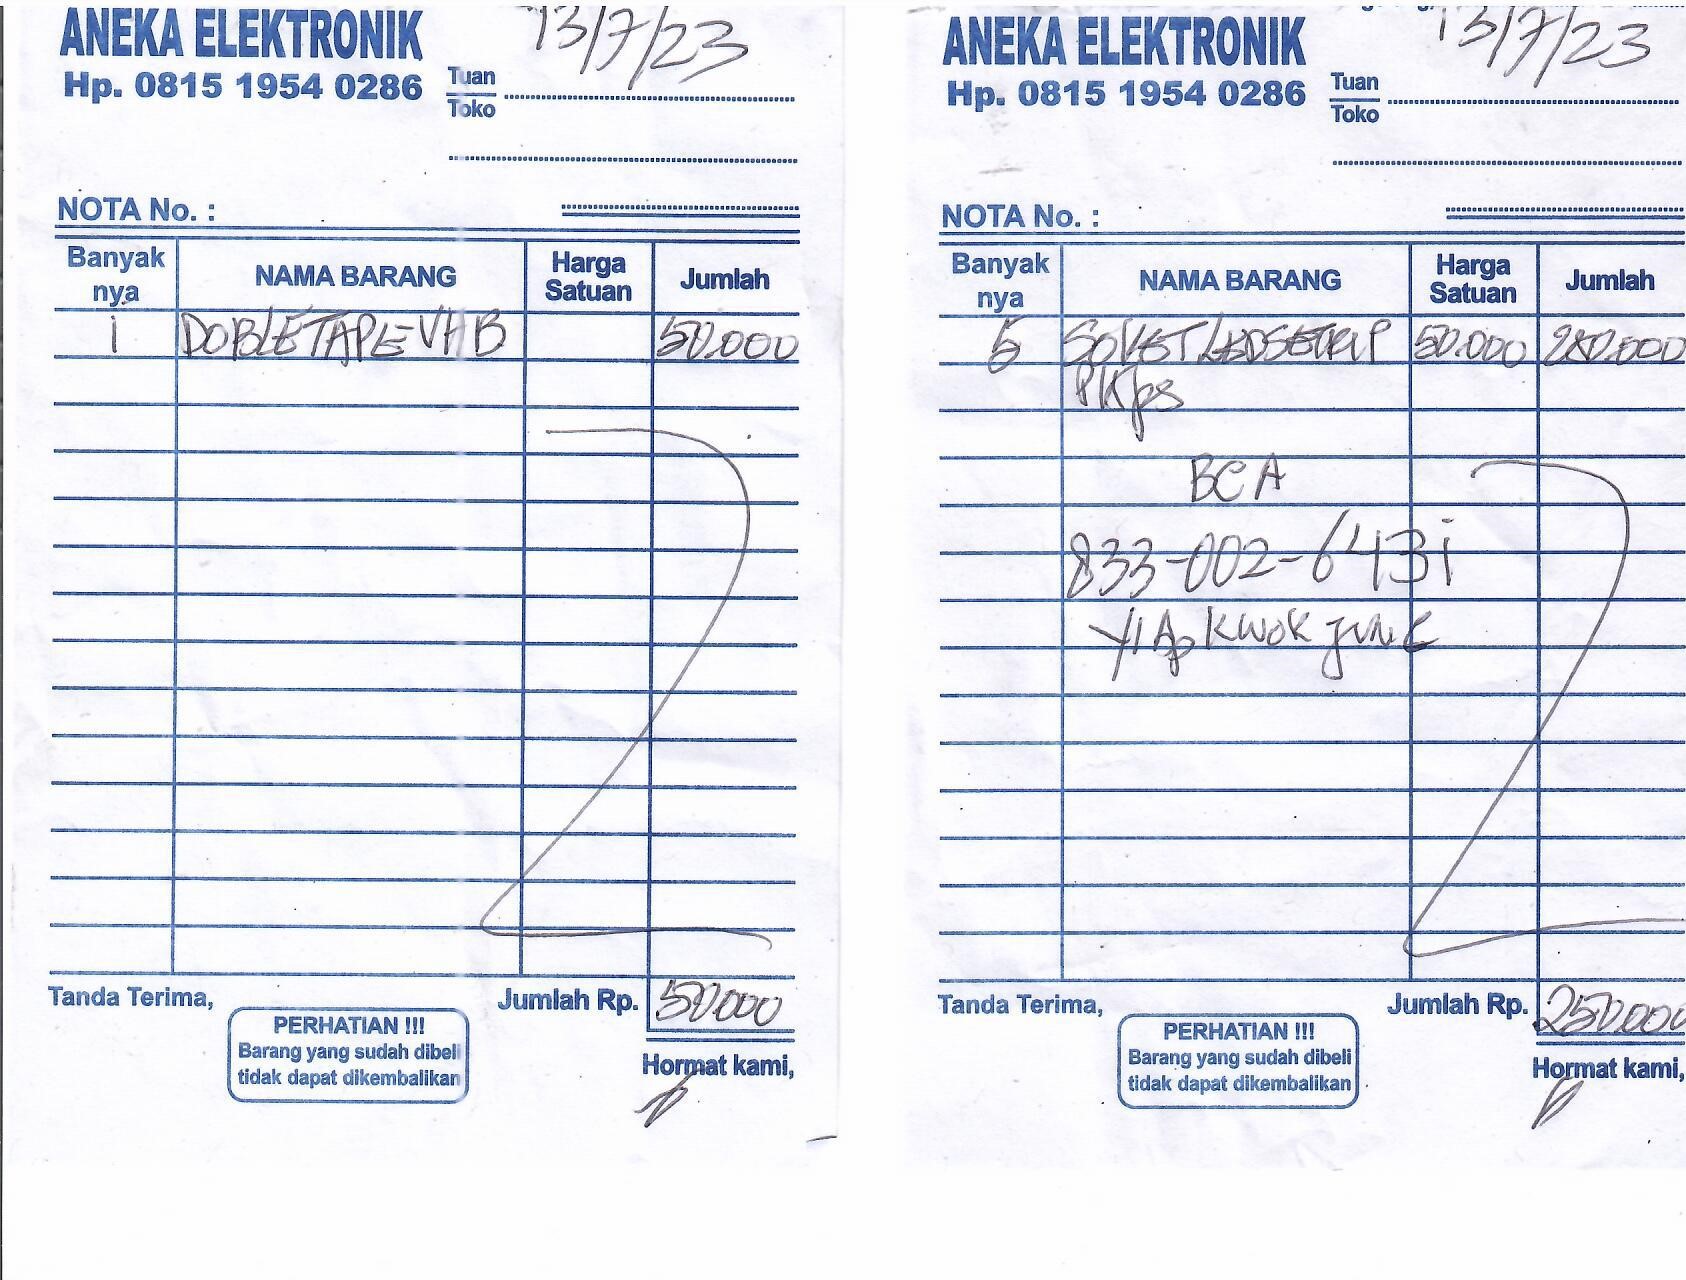 ANEKA ELEKTRONIK
Hp. 0815 1954 0286
13/7/23
Tuan
Toko
NOTA No. :
Banyak nya
NAMA BARANG
Harga Satuan
Jumlah
1 DOBLE TAPE VHB 50.000
Tanda Terima,
Jumlah Rp. 50.000
PERHATIAN !!!
Barang yang sudah dibeli
tidak dapat dikembalikan
Hormat kami,
ANEKA ELEKTRONIK
Hp. 0815 1954 0286
13/7/23
Tuan
Toko
NOTA No. :
Banyak nya
NAMA BARANG
Harga Satuan
Jumlah
5 SOKET LEDSETRIP 50.000 250.000
BCA
833-002-6431
YIAp KWOK
Tanda Terima,
Jumlah Rp. 250.000
PERHATIAN !!!
Barang yang sudah dibeli
tidak dapat dikembalikan
Hormat kami,